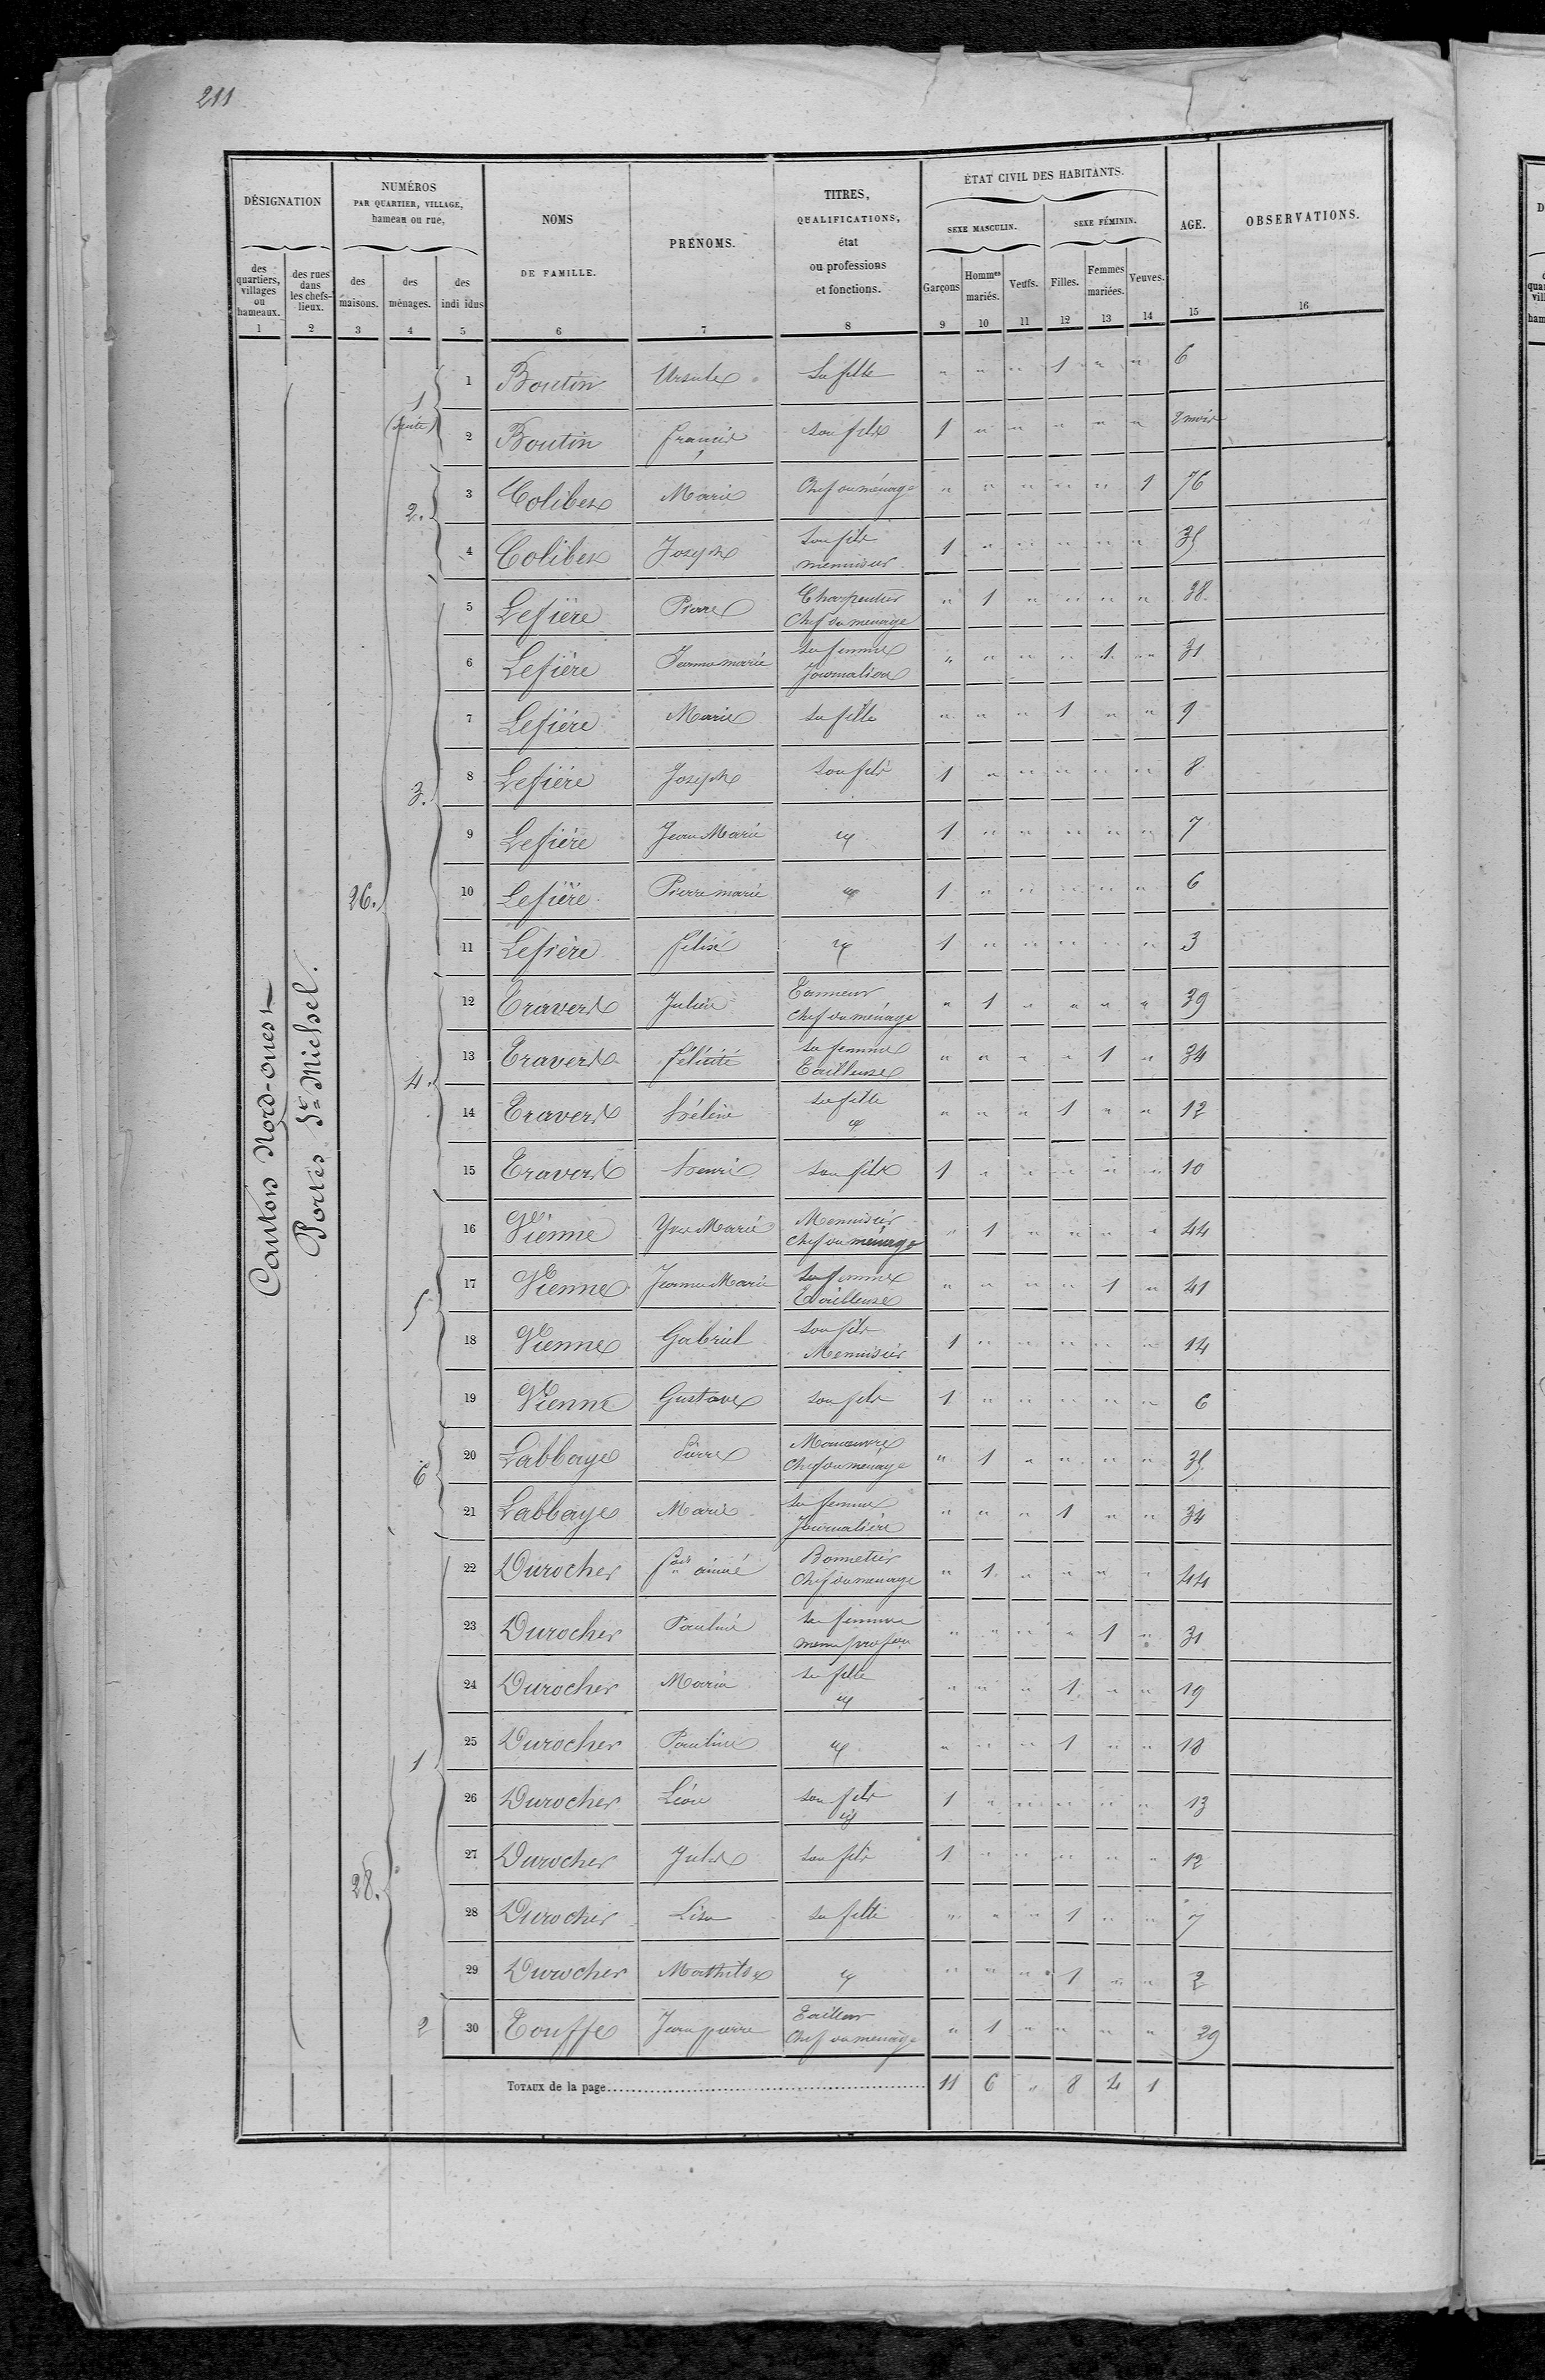 211
DÉSIGNATION
NUMÉROS
PAR QUARTIER, VILLAGE,
hameau ou rue,
NOMS
DE FAMILLE.
PRÉNOMS.
TITRES,
QUALIFICATIONS,
état
ou professions
et fonctions.
ÉTAT CIVIL DES HABITANTS.
SEXE MASCULIN.
SEXE FÉMININ.
AGE.
OBSERVATIONS.
des quartiers, villages ou hameaux.
des rues dans les chefs-lieux.
des maisons.
des ménages.
des indi idus
Garçons
Hommes mariés.
Veufs.
Filles.
Femmes mariées.
Veuves.
1 2 3 4 5 6 7 8 9 10 11 12 13 14 15 16
Canton Nord-ouest
Portes St Michel.
26.
28.
1 (suite)
1 Boutin Ursule Sa fille " " " 1 " " 6
2 Boutin francis son fils 1 " " " " " 2 mois
2.
3 Colibex Marie Chef du ménage " " " " " 1 76
4 Colibex Joseph Son fils menuisier 1 " " " " " 35
3.
5 Lefière Pierre Charpentier Chef du ménage " 1 " " " " 38
6 Lefière Jeanne marie sa femme Journalière " " " " 1 " 31
7 Lefière Marie sa fille " " " 1 " " 9
8 Lefière Joseph son fils 1 " " " " " 8
9 Lefière Jean Marie id 1 " " " " " 7
10 Lefière Pierre marie id 1 " " " " " 6
11 Lefière félix id 1 " " " " " 3
4.
12 Travers Julien Tanneur chef du ménage " 1 " " " " 39
13 Travers félicité sa femme Tailleuse " " " " 1 " 34
14 Travers hélène sa fille id " " " 1 " " 12
15 Travers henri son fils 1 " " " " " 10
5
16 Vienne Yves Marie Menuisier chef du ménage " 1 " " " " 44
17 Vienne Jeanne Marie sa femme Tailleuse " " " " 1 " 41
18 Vienne Gabriel son fils Menuisier 1 " " " " " 14
19 Vienne Gustave son fils 1 " " " " " 6
6
20 Labbaye Pierre Manoeuvre Chef du ménage " 1 " " " " 35
21 Labbaye Marie sa femme Journalière " " " 1 " " 34
1
22 Durocher fois aimé Bonnetier chef du ménage " 1 " " " " 44
23 Durocher Pauline sa femme meme profson " " " " 1 " 31
24 Durocher Maria sa fille id " " " 1 " " 19
25 Durocher Pauline id " " " 1 " " 18
26 Durocher Léon son fils id 1 " " " " " 13
27 Durocher Jules son fils 1 " " " " " 12
28 Durocher Lisa sa fille " " " 1 " " 7
29 Durocher Mathilde id " " " 1 " " 2
2
30 Touffe Jean pierre Tailleur Chef du ménage " 1 " " " " 29
TOTAUX de la page 11 6 " 8 4 1